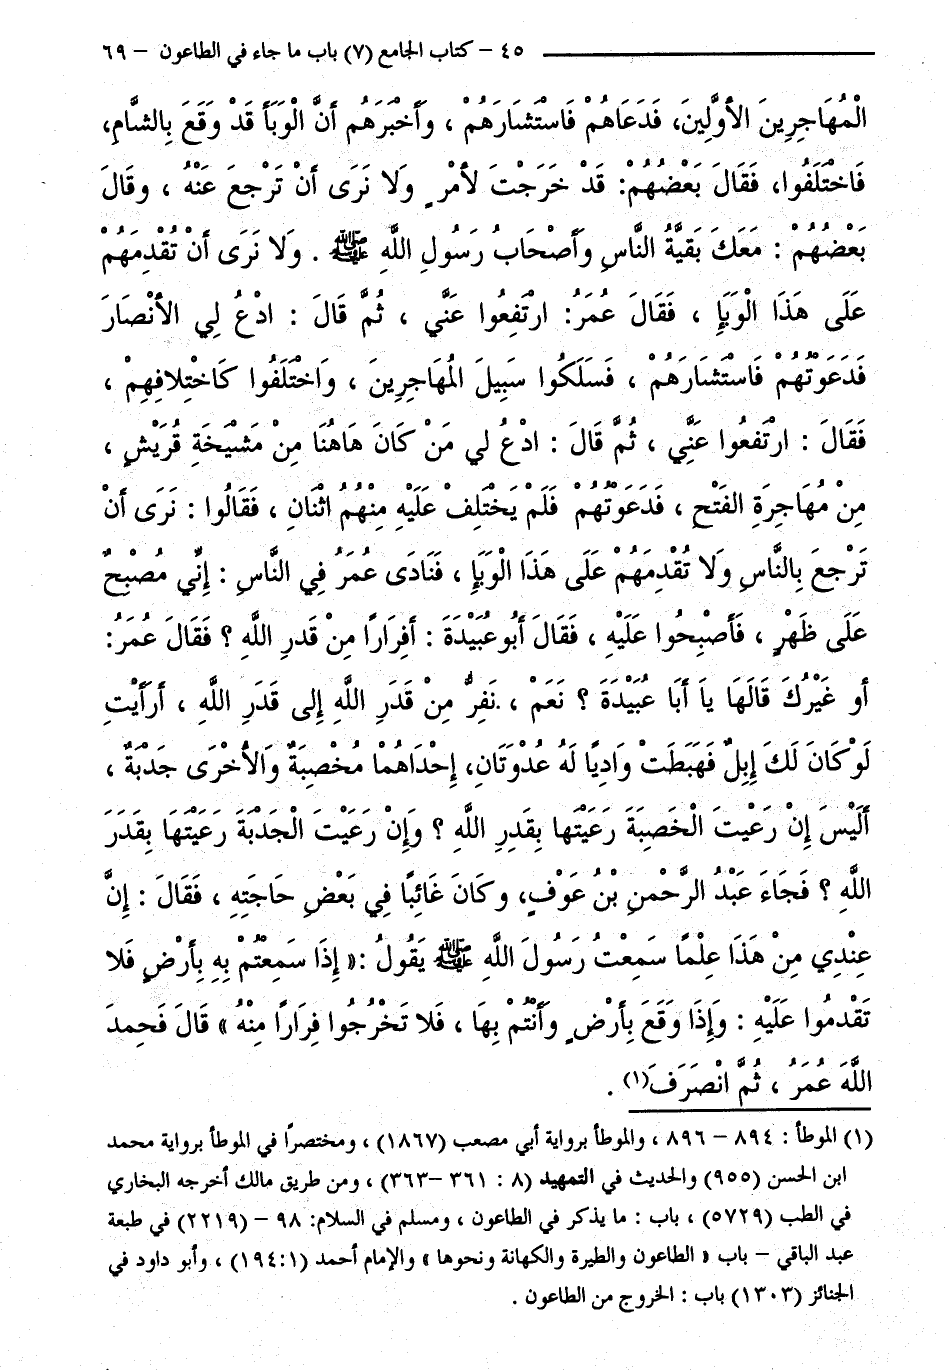 ٤٥ – كتاب الجامع (٧) باب ما جاء في الطاعون – ٦٩
الْمُهَاجِرِينَ الأوَّلِينَ، فَدَعَاهُمْ فَاسْتَشَارَهُمْ ، وَأَخْبَرَهُم أنَّ الْوَبَأَ قَدْ وَقَعَ بِالشَّامِ،
فَاخْتَلَفُوا، فَقَالَ بَعْضُهُمْ: قَدْ خَرَجْتَ لأمْرٍ وَلَا نَرَى أنْ تَرْجِعَ عَنْهُ ، وقَالَ
بَعْضُهُمْ : مَعَكَ بَقِيَّةُ النَّاسِ وَأَصْحَابُ رَسُولِ اللَّهِ ﷺ . وَلَا نَرَى أنْ تُقْدِمَهُمْ
عَلَى هَذَا الْوَبَإِ ، فَقَالَ عُمَرُ: ارْتَفِعُوا عَنَّي ، ثُمَّ قَالَ : ادْعُ لِي الأنْصَارَ
فَدَعَوْتُهُمْ فَاسْتَشَارَهُمْ ، فَسَلَكُوا سَبِيلَ المُهَاجِرِينَ ، وَاخْتَلَفُوا كَاخْتِلافِهِمْ ،
فَقَالَ : ارْتَفِعُوا عَنَّي ، ثُمَّ قَالَ : ادْعُ لي مَنْ كَانَ هَاهُنَا مِنْ مَشْيَخَةِ قُرَيْشٍ ،
مِنْ مُهَاجِرَةِ الفَتْحِ ، فَدَعَوْتُهُمْ فَلَمْ يَخْتَلِفْ عَلَيْهِ مِنْهُمُ اثْنَانِ ، فَقَالُوا : نَرَى أنْ
تَرْجِعَ بِالنَّاسِ وَلَا تُقْدِمَهُمْ عَلَى هَذَا الْوَبَإِ ، فَنَادَى عُمَرُ فِي النَّاسِ : إِنِّي مُصْبِحٌ
عَلَى ظَهْرٍ ، فَأَصْبِحُوا عَلَيْهِ ، فَقَالَ أَبُو عُبَيْدَةَ : أَفِرَارًا مِنْ قَدَرِ اللَّهِ ؟ فَقَالَ عُمَرُ:
أو غَيْرُكَ قَالَهَا يا أَبَا عُبَيْدَةَ ؟ نَعَمْ ، نَفِرُّ مِنْ قَدَرِ اللَّهِ إِلى قَدَرِ اللَّهِ ، أَرَأَيْتَ
لَوْ كَانَ لَكَ إِبِلٌ فَهَبَطَتْ وَادِيًا لَهُ عُدْوَتَانِ، إِحْدَاهُمْا مُخْصِبَةٌ وَالأُخْرَى جَدْبَةٌ ،
أَلَيْسَ إِنْ رَعَيْتَ الْخَصِبَةَ رَعَيْتَها بِقَدَرِ اللَّهِ ؟ وَإِنْ رَعَيْتَ الْجَدْبَةَ رَعَيْتَهَا بِقَدَرَ
اللَّهِ ؟ فَجَاءَ عَبْدُ الرَّحْمنِ بْنُ عَوْفٍ، وكَانَ غَائِبًا فِي بَعْضِ حَاجَتِهِ ، فَقَالَ : إِنَّ
عِنْدِي مِنْ هَذَا عِلْمًا سَمِعْتُ رَسُولَ اللَّهِ ﷺ يَقُولُ :« إِذَا سَمِعْتُمْ بِهِ بِأَرْضٍ فَلا
تَقْدَمُوا عَلَيْهِ : وَإِذَا وَقَعَ بِأَرْضٍ وَأَنْتُمْ بِهَا ، فَلا تَخْرُجُوا فِرَارًا مِنْهُ » قَالَ فَحَمِدَ
اللَّهَ عُمَرُ ، ثُمَّ انْصَرَفَ(١) .
(١) الموطأ : ٨٩٤ – ٨٩٦ ، والموطأ برواية أبي مصعب (١٨٦٧) ، ومختصرًا في الموطأ برواية محمد
ابن الحسن (٩٥٥) والحديث في التمهيد (٨ : ٣٦١ –٣٦٣) ، ومن طريق مالك أخرجه البخاري
في الطب (٥٧٢٩) ، باب : ما يذكر في الطاعون ، ومسلم في السلام: ٩٨ – (٢٢١٩) في طبعة
عبد الباقي – باب « الطاعون والطيرة والكهانة ونحوها » والإمام أحمد (١٩٤:١) ، وأبو داود في
الجنائز (١٣٠٣) باب : الخروج من الطاعون .